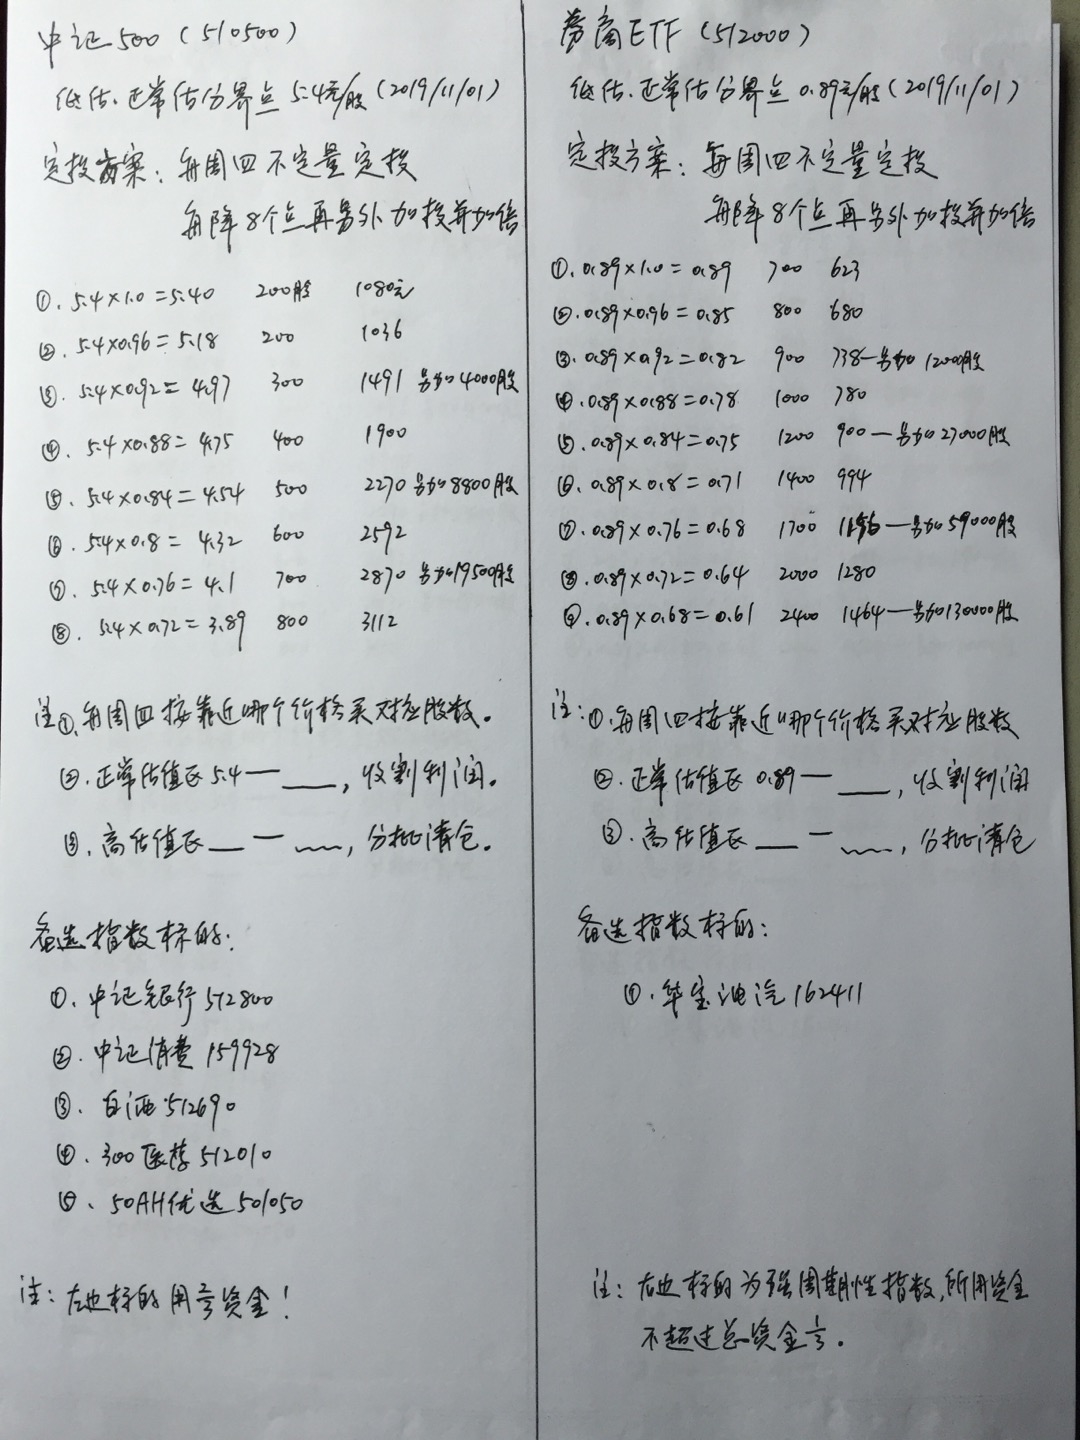 中证500 (510500)
低估、正常估分界点 5.4元/股 (2019/11/01)
定投方案: 每周四不定量定投
每降8个点再另外加投并加倍
①. 5.4×1.0=5.40 200股 1080元
②. 5.4×0.96=5.18 200 1036
③. 5.4×0.92=4.97 300 1491 另加4000股
④. 5.4×0.88=4.75 400 1900
⑤. 5.4×0.84=4.54 500 2270 另加8800股
⑥. 5.4×0.8=4.32 600 2592
⑦. 5.4×0.76=4.1 700 2870 另加19500股
⑧. 5.4×0.72=3.89 800 3112
注①. 每周四接靠近哪个价格买对应股数。
②. 正常估值区5.4— ___, 收割利润。
③. 高估值区___ — ___, 分批清仓。
备选指数标的:
①. 中证银行 512800
②. 中证消费 159928
③. 白酒 512690
④. 300医药 512010
⑤. 50AH优选 501050
注: 左边标的用 资金!
券商ETF (512000)
低估、正常估分界点 0.89元/股 (2019/11/01)
定投方案: 每周四不定量定投
每降8个点再另外加投并加倍
①. 0.89×1.0=0.89 700 623
②. 0.89×0.96=0.85 800 680
③. 0.89×0.92=0.82 900 738—另加12000股
④. 0.89×0.88=0.78 1000 780
⑤. 0.89×0.84=0.75 1200 900—另加27000股
⑥. 0.89×0.8=0.71 1400 994
⑦. 0.89×0.76=0.68 1700 1156—另加59000股
⑧. 0.89×0.72=0.64 2000 1280
⑨. 0.89×0.68=0.61 2400 1464—另加130000股
注: ①. 每周四接靠近哪个价格买对应股数
②. 正常估值区0.89— ___, 收割利润
③. 高估值区___ — ___, 分批清仓
备选指数标的:
①. 华宝油气 162411
注: 右边标的为强周期性指数, 所用资金
不超过总资金 。